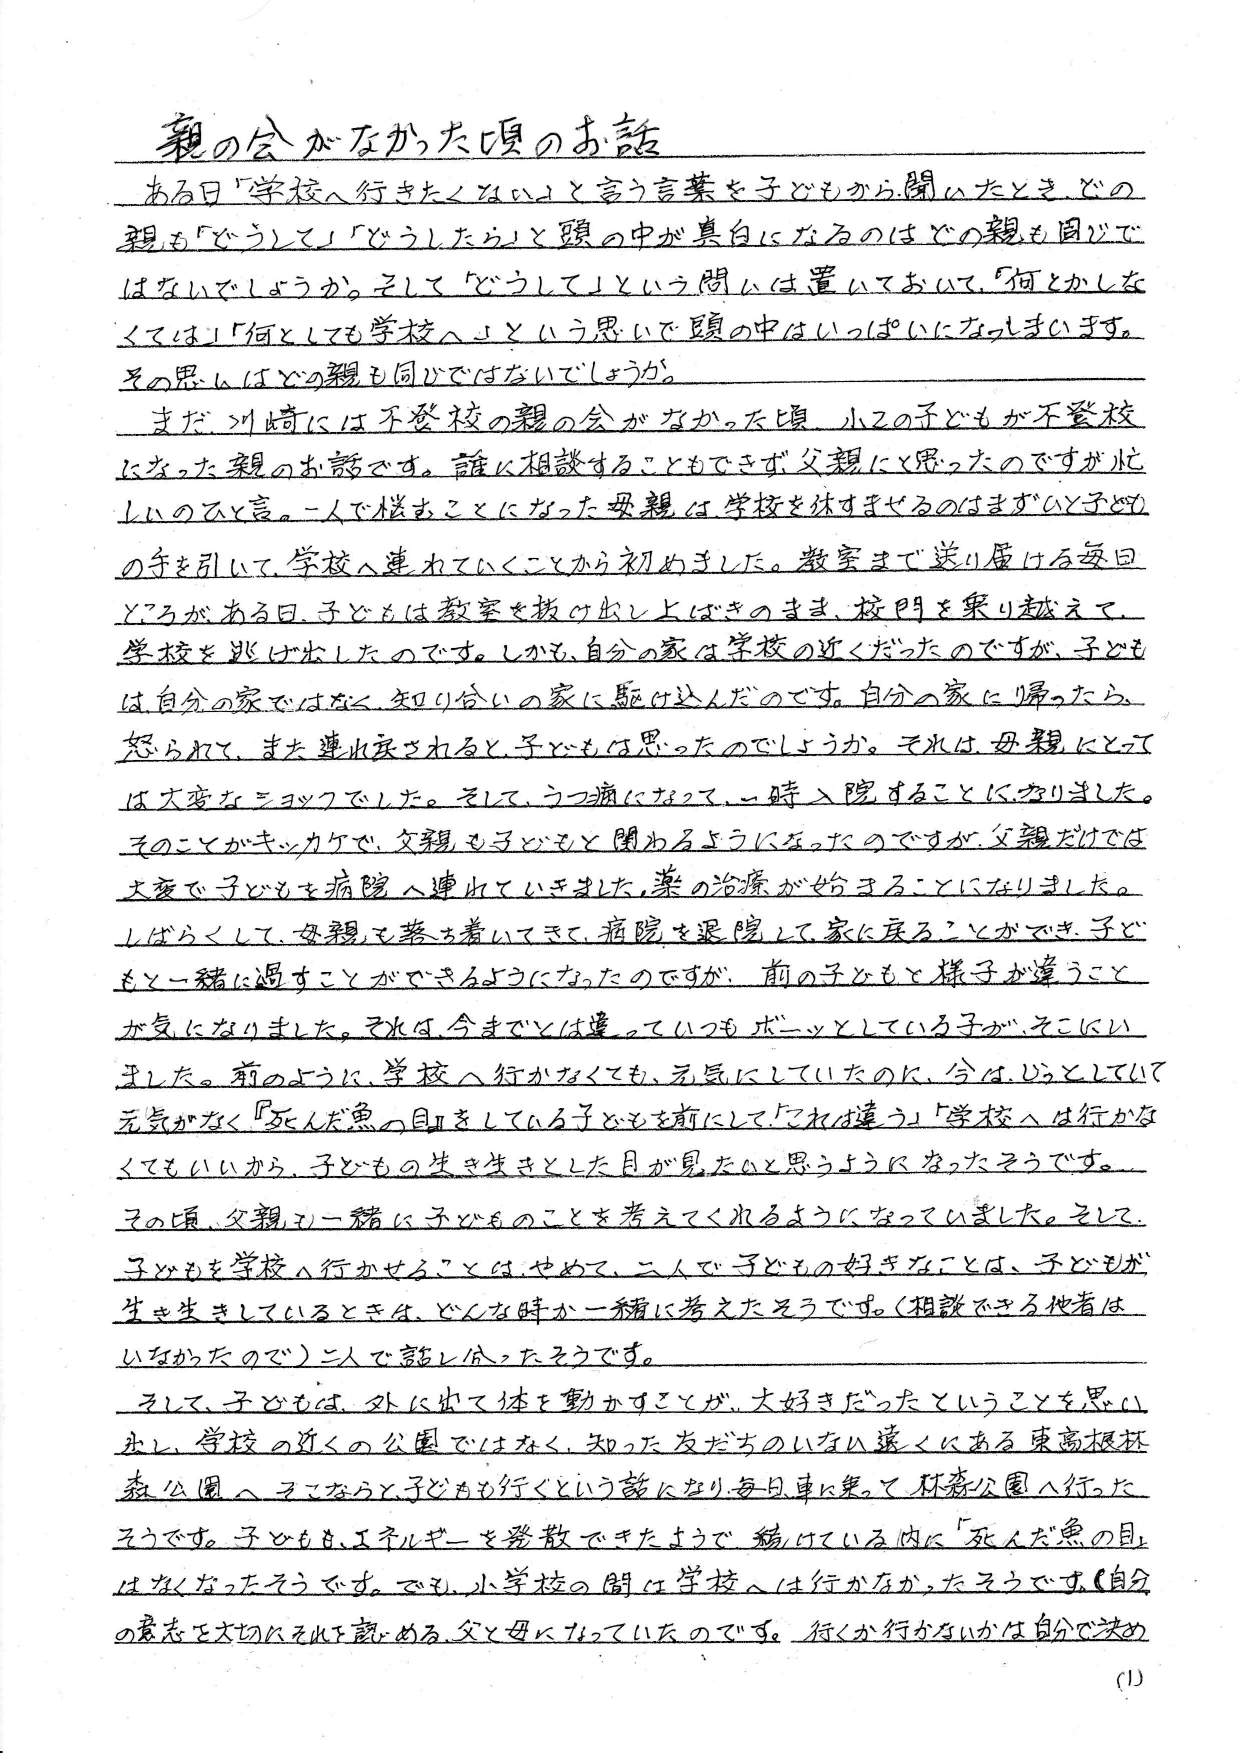 親の会がなかった頃のお話
ある日「学校へ行きたくない」と言う言葉を子どもから聞いたとき、どの
親も「どうして」「どうしたら」と頭の中が真白になるのはどの親も同じで
はないでしょうか。そして「どうして」という問いは置いておいて、「何とかしな
くては」「何としても学校へ」という思いで頭の中はいっぱいになってしまいます。
その思いはどの親も同じではないでしょうか。
まだ、川崎には不登校の親の会がなかった頃、小2の子どもが不登校
になった親のお話です。誰に相談することもできず、父親にと思ったのですが忙
しいのひと言。一人で悩むことになった母親は、学校を休すませるのはまずいと子ども
の手を引いて、学校へ連れていくことから初めました。教室まで送り届ける毎日
ところが、ある日、子どもは教室を抜け出し上ばきのまま、校門を乗り越えて、
学校を逃げ出したのです。しかも、自分の家は学校の近くだったのですが、子ども
は、自分の家ではなく、知り合いの家に駆け込んだのです。自分の家に帰ったら、
怒られて、また連れ戻されると、子どもは思ったのでしょうか。それは、母親にとって
は大変なショックでした。そして、うつ病になって、一時入院することになりました。
そのことがキッカケで、父親も子どもと関わるようになったのですが、父親だけでは
大変で子どもを病院へ連れていきました。薬の治療が始まることになりました。
しばらくして、母親も落ち着いてきて、病院を退院して、家に戻ることができ、子ど
もと一緒に過すことができるようになったのですが、前の子どもと様子が違うこと
が気になりました。それは、今までとは違っていつもボーッとしている子が、そこにい
ました。前のように、学校へ行かなくても、元気にしていたのに、今は、じっとしていて
元気がなく『死んだ魚の目』をしている子どもを前にして「これは違う」「学校へは行かな
くてもいいから、子どもの生き生きとした目が見たいと思うようになったそうです。
その頃、父親も一緒に子どものことを考えてくれるようになっていました。そして、
子どもを学校へ行かせることは、やめて、二人で子どもの好きなことは、子どもが
生き生きしているときは、どんな時か一緒に考えたそうです。(相談できる他者は
いなかったので)二人で話し合ったそうです。
そして、子どもは、外に出て体を動かすことが、大好きだったということを思い
出し、学校の近くの公園ではなく、知った友だちのいない遠くにある東高根林
森公園へ そこならと、子どもも行くという話になり、毎日、車に乗って林森公園へ行った
そうです。子どもも、エネルギーを発散できたようで、続けている内に「死んだ魚の目」
はなくなったそうです。でも、小学校の間は学校へは行かなかったそうです。(自分
の意志を大切にそれを認める、父と母になっていたのです。行くか行かないかは自分で決め
(1)